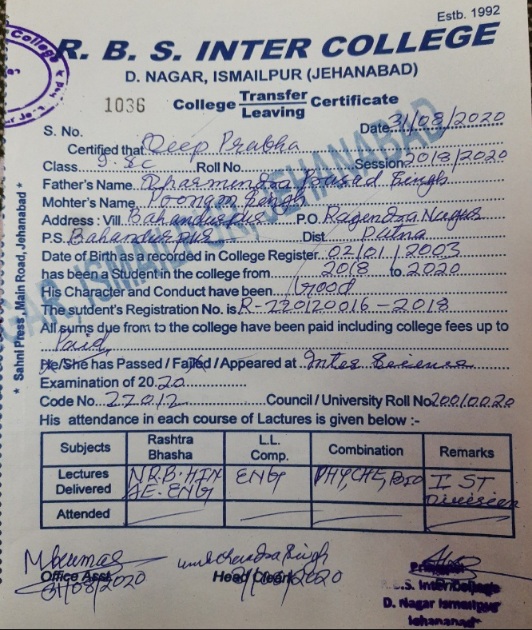 Estb. 1992
R. B. S. INTER COLLEGE
D. NAGAR, ISMAILPUR (JEHANABAD)
1036 College Transfer Leaving Certificate
S. No. Date 31/08/2020
Certified that Deep Prabha
Class I. Sc Roll No. Session 2018/2020
Father's Name Dharmendra Prasad Singh
Mohter's Name Poonam Singh
Address : Vill. Bahandurpur P.O. Rajendra Nagar
P.S. Bahandurpur Dist Patna
Date of Birth as a recorded in College Register 02/01/2003
has been a Student in the college from 2018 to 2020
His Character and Conduct have been Good
The sudent's Registration No. is R-220120016-2018
All sums due from to the college have been paid including college fees up to
Paid
He/She has Passed / Failed / Appeared at Inter Science
Examination of 20 20
Code No. 22012 Council / University Roll No 20010020
His attendance in each course of Lactures is given below :-
Subjects Rashtra Bhasha L.L. Comp. Combination Remarks
Lectures Delivered NRB-HIN AE-ENG ENG PHY, CHE, BIO I ST Division
Attended
Office Asst. Head Clerk
31/08/2020
R.B.S. Inter College
D. Nagar Ismailpur
Jehanabad
* Sahni Press, Main Road, Jehanabad *